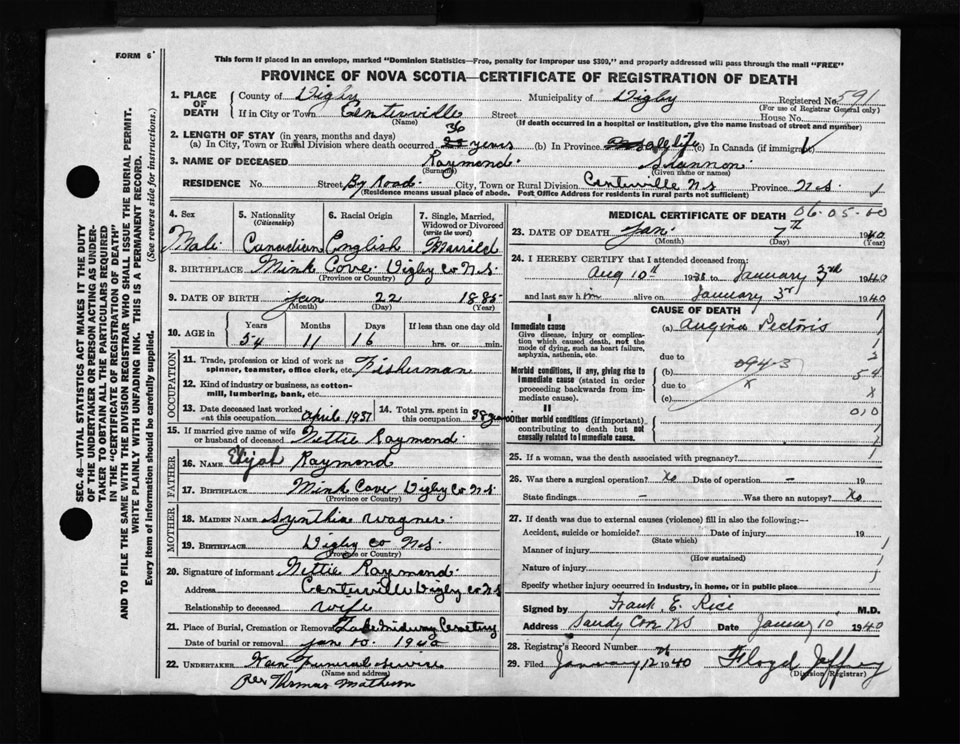 FORM 6
This form if placed in an envelope, marked "Dominion Statistics—Free, penalty for improper use $300," and properly addressed will pass through the mail "FREE"
PROVINCE OF NOVA SCOTIA—CERTIFICATE OF REGISTRATION OF DEATH
1. PLACE OF DEATH
County of Digby Municipality of Digby Registered No. 591
(For use of Registrar General only)
If in City or Town Centerville Street House No.
(Name) (If death occurred in a hospital or institution, give the name instead of street and number)
2. LENGTH OF STAY (in years, months and days)
(a) In City, Town or Rural Division where death occurred 36 years (b) In Province all life (c) In Canada (if immigrant)
3. NAME OF DECEASED Raymond Shannon
(Surname) (Given name or names)
RESIDENCE No. Street By Road City, Town or Rural Division Centerville N S Province N.S.
(Residence means usual place of abode. Post Office Address for residents in rural parts not sufficient)
4. Sex
Male
5. Nationality (Citizenship)
Canadian
6. Racial Origin
English
7. Single, Married, Widowed or Divorced (write the word)
Married
8. BIRTHPLACE Mink Cove Digby Co N.S.
(Province or Country)
9. DATE OF BIRTH Jan 22 1885
(Month) (Day) (Year)
10. AGE in Years Months Days If less than one day old
54 11 16 hrs. or min.
OCCUPATION
11. Trade, profession or kind of work as spinner, teamster, office clerk, etc. Fisherman
12. Kind of industry or business, as cotton-mill, lumbering, bank, etc.
13. Date deceased last worked at this occupation April 1937
14. Total yrs. spent in this occupation 38 years
15. If married give name of wife or husband of deceased Nettie Raymond
FATHER
16. NAME Elijah Raymond
17. BIRTHPLACE Mink Cove Digby Co N.S
(Province or Country)
MOTHER
18. MAIDEN NAME Synthia Wagner
19. BIRTHPLACE Digby Co N.S.
(Province or Country)
20. Signature of informant Nettie Raymond
Address Centerville Digby Co N S
Relationship to deceased wife
21. Place of Burial, Cremation or Removal Lake Midway Cemetery
Date of burial or removal Jan 10 1940
22. UNDERTAKER Funeral Service
(Name and address)
Per Thomas Matheson
MEDICAL CERTIFICATE OF DEATH
23. DATE OF DEATH Jan. 7th 1940
(Month) (Day) (Year)
24. I HEREBY CERTIFY that I attended deceased from:
Aug 10th 1938 to January 3rd 1940
and last saw him alive on January 3rd 1940
CAUSE OF DEATH
I
Immediate cause
Give disease, injury or complication which caused death, not the mode of dying, such as heart failure, asphyxia, asthenia, etc.
(a) Angina Pectoris
due to
Morbid conditions, if any, giving rise to immediate cause (stated in order proceeding backwards from immediate cause).
(b) 094-3
due to
(c)
II
Other morbid conditions (if important) contributing to death but not causally related to immediate cause.
25. If a woman, was the death associated with pregnancy?
26. Was there a surgical operation? No Date of operation – 19
State findings – Was there an autopsy? No
27. If death was due to external causes (violence) fill in also the following:—
Accident, suicide or homicide? Date of injury 19
(State which)
Manner of injury
(How sustained)
Nature of injury
Specify whether injury occurred in industry, in home, or in public place
Signed by Frank E. Rice M.D.
Address Sandy Cove NS Date January 10 1940
28. Registrar's Record Number
29. Filed January 12 1940 Floyd Jeffrey
(Division Registrar)
SEC. 46—VITAL STATISTICS ACT MAKES IT THE DUTY
OF THE UNDERTAKER OR PERSON ACTING AS UNDER-
TAKER TO OBTAIN ALL THE PARTICULARS REQUIRED
IN THE "CERTIFICATE OF REGISTRATION OF DEATH"
AND TO FILE THE SAME WITH THE DIVISION REGISTRAR WHO SHALL ISSUE THE BURIAL PERMIT.
WRITE PLAINLY WITH UNFADING INK. THIS IS A PERMANENT RECORD.
Every item of information should be carefully supplied. (See reverse side for instructions.)